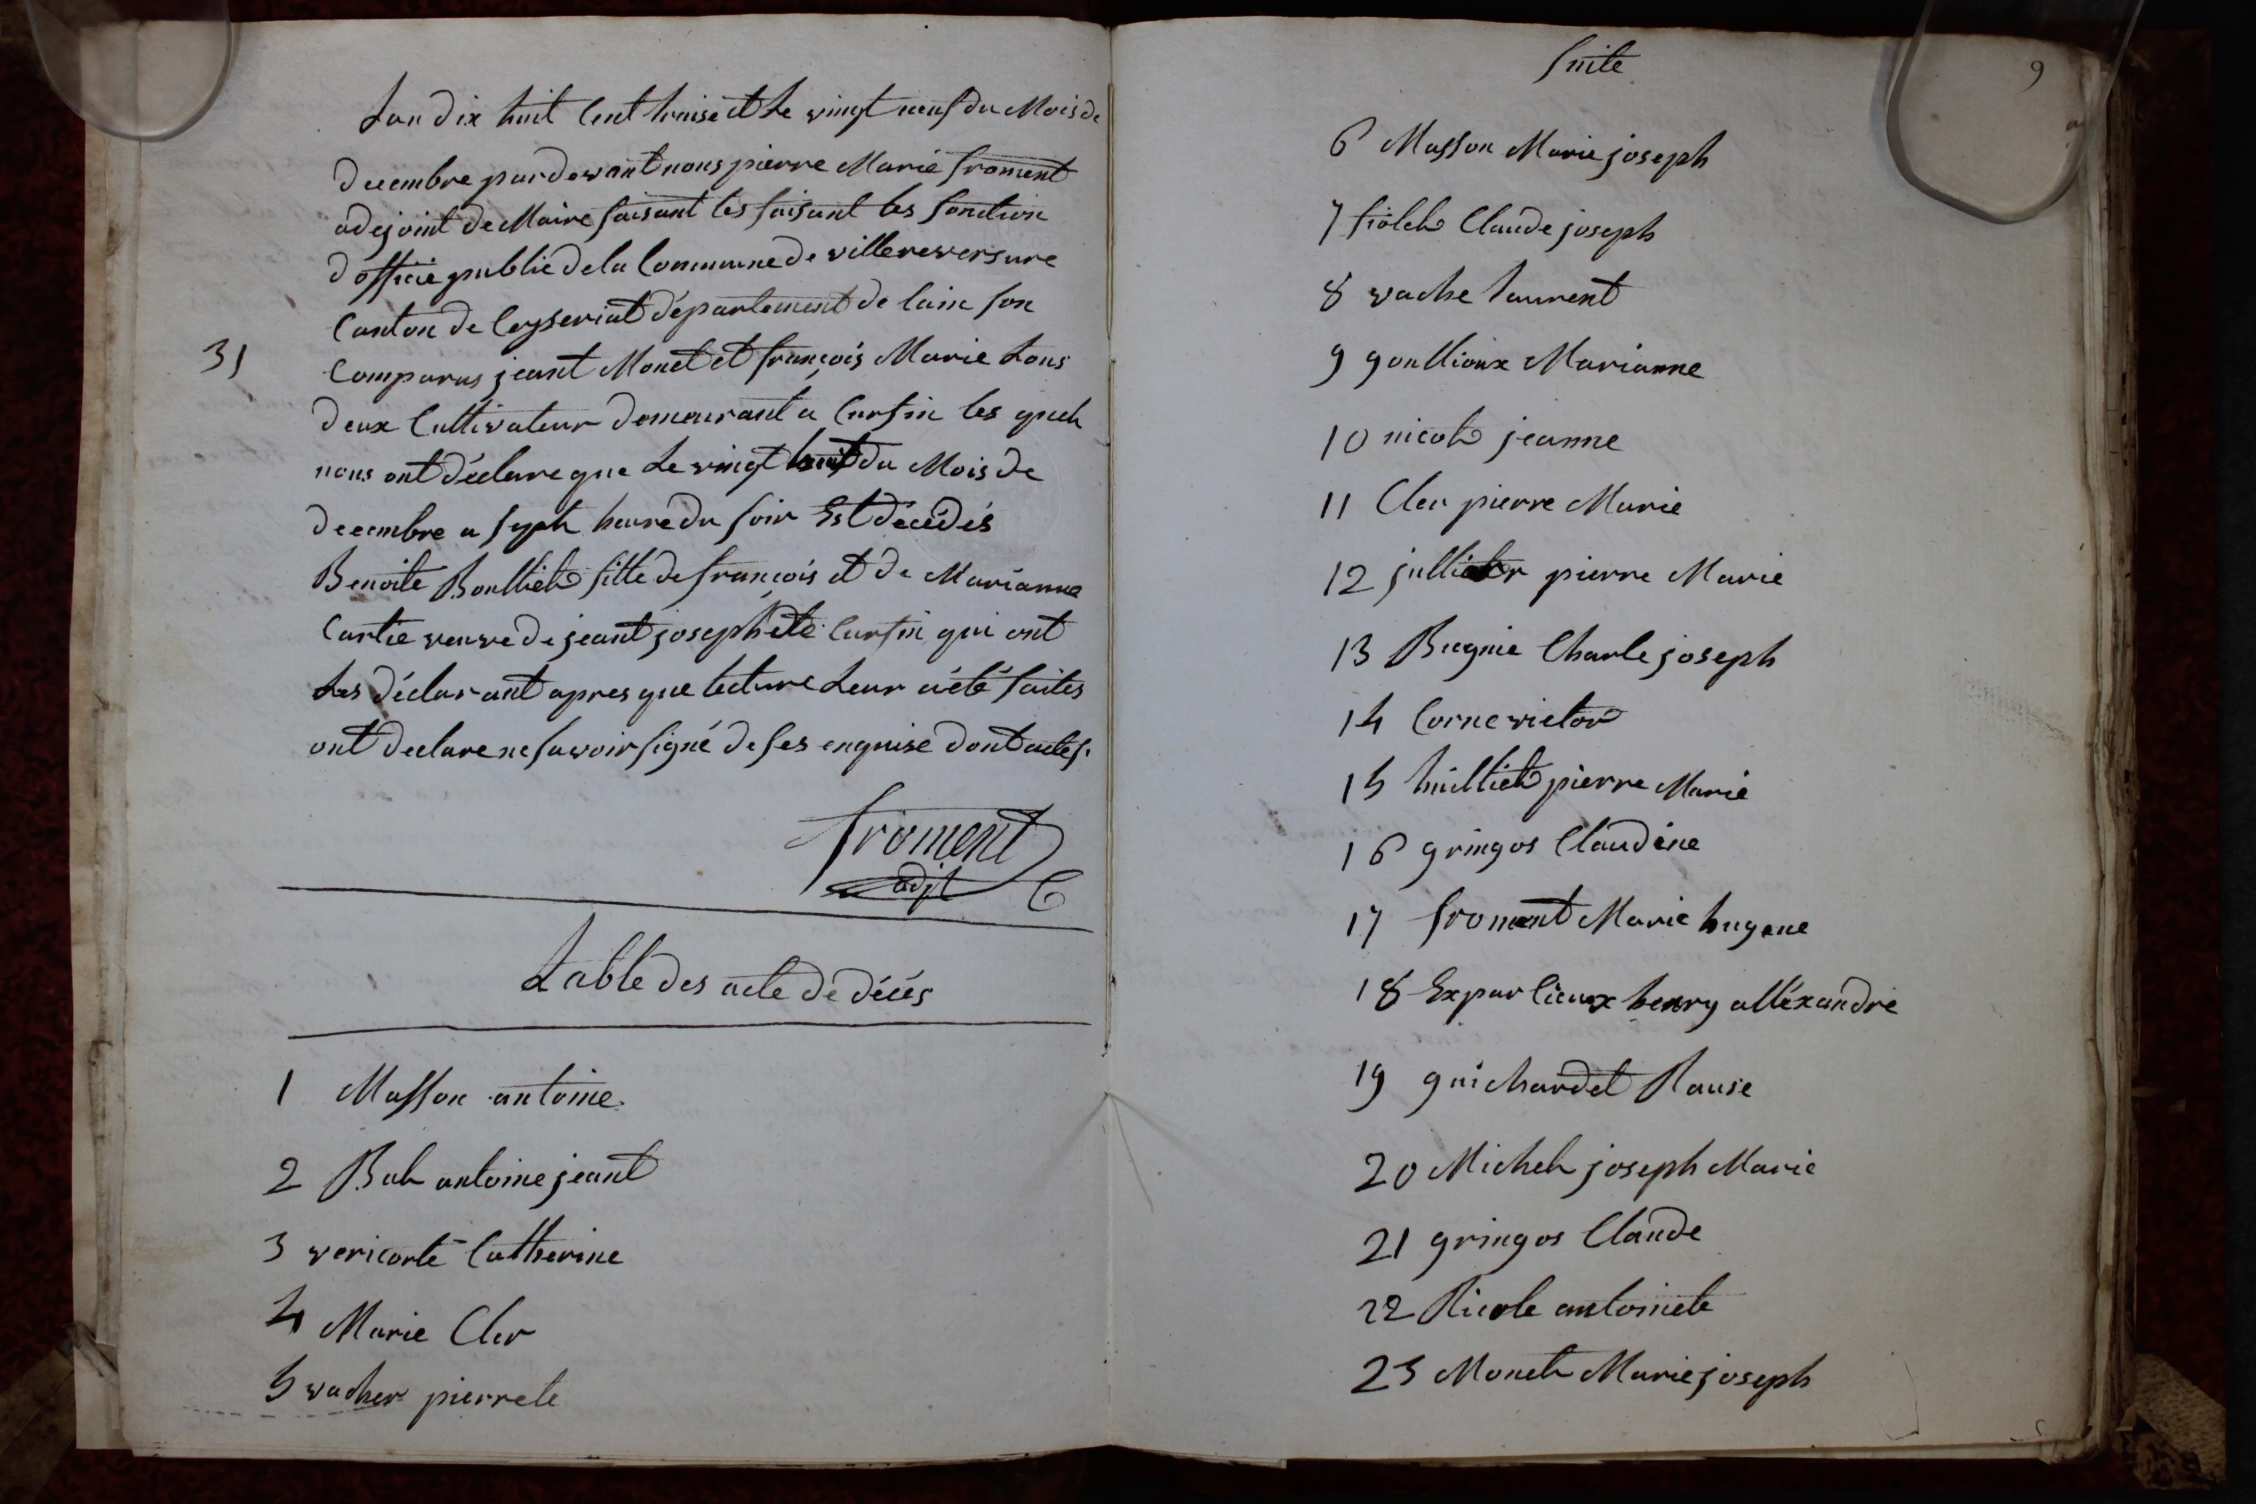 Lan dix huit Cent treise et Le vingt neuf du Mois de
decembre par devant nous pierre Marie froment
adejoint de Maire faisant les faisant les fonction
d officié public de la Commune de villereversure
Canton de Ceyseriat département de lain son
31
Comparus jeant Monet et françois Marie tous
deux Cultivateur demeurant a Cursin les quels
nous ont déclare que Le vingt huit du Mois de
decembre a sept heure du soir Est décédés
Benoite Boulliet fille de françois et de Marianne
Cartie veuve de jeant joseph Cursin qui ont
Les déclarant apres que lecture Leur a été faites
ont declare ne savoir signé de ses enquise dont actes.
froment
adjt
Table des acte de décés
1 Masson antoine
2 antoine jeant
3 vericorte Catherine
4 Marie Cler
5 vacher pierrete
Suite
9
6 Masson Marie joseph
7 Claude joseph
8 vache laurent
9 goullioux Marianne
10 nicole jeanne
11 Cler pierre Marie
12 pierre Marie
13 Charle joseph
14 Corne victor
15 pierre Marie
16 gringos Claudine
17 froment Marie hugene
18 henry alléxandre
19 guichardet Rause
20 Michel joseph Marie
21 gringos Claude
22 antoinete
23 Monet Marie joseph